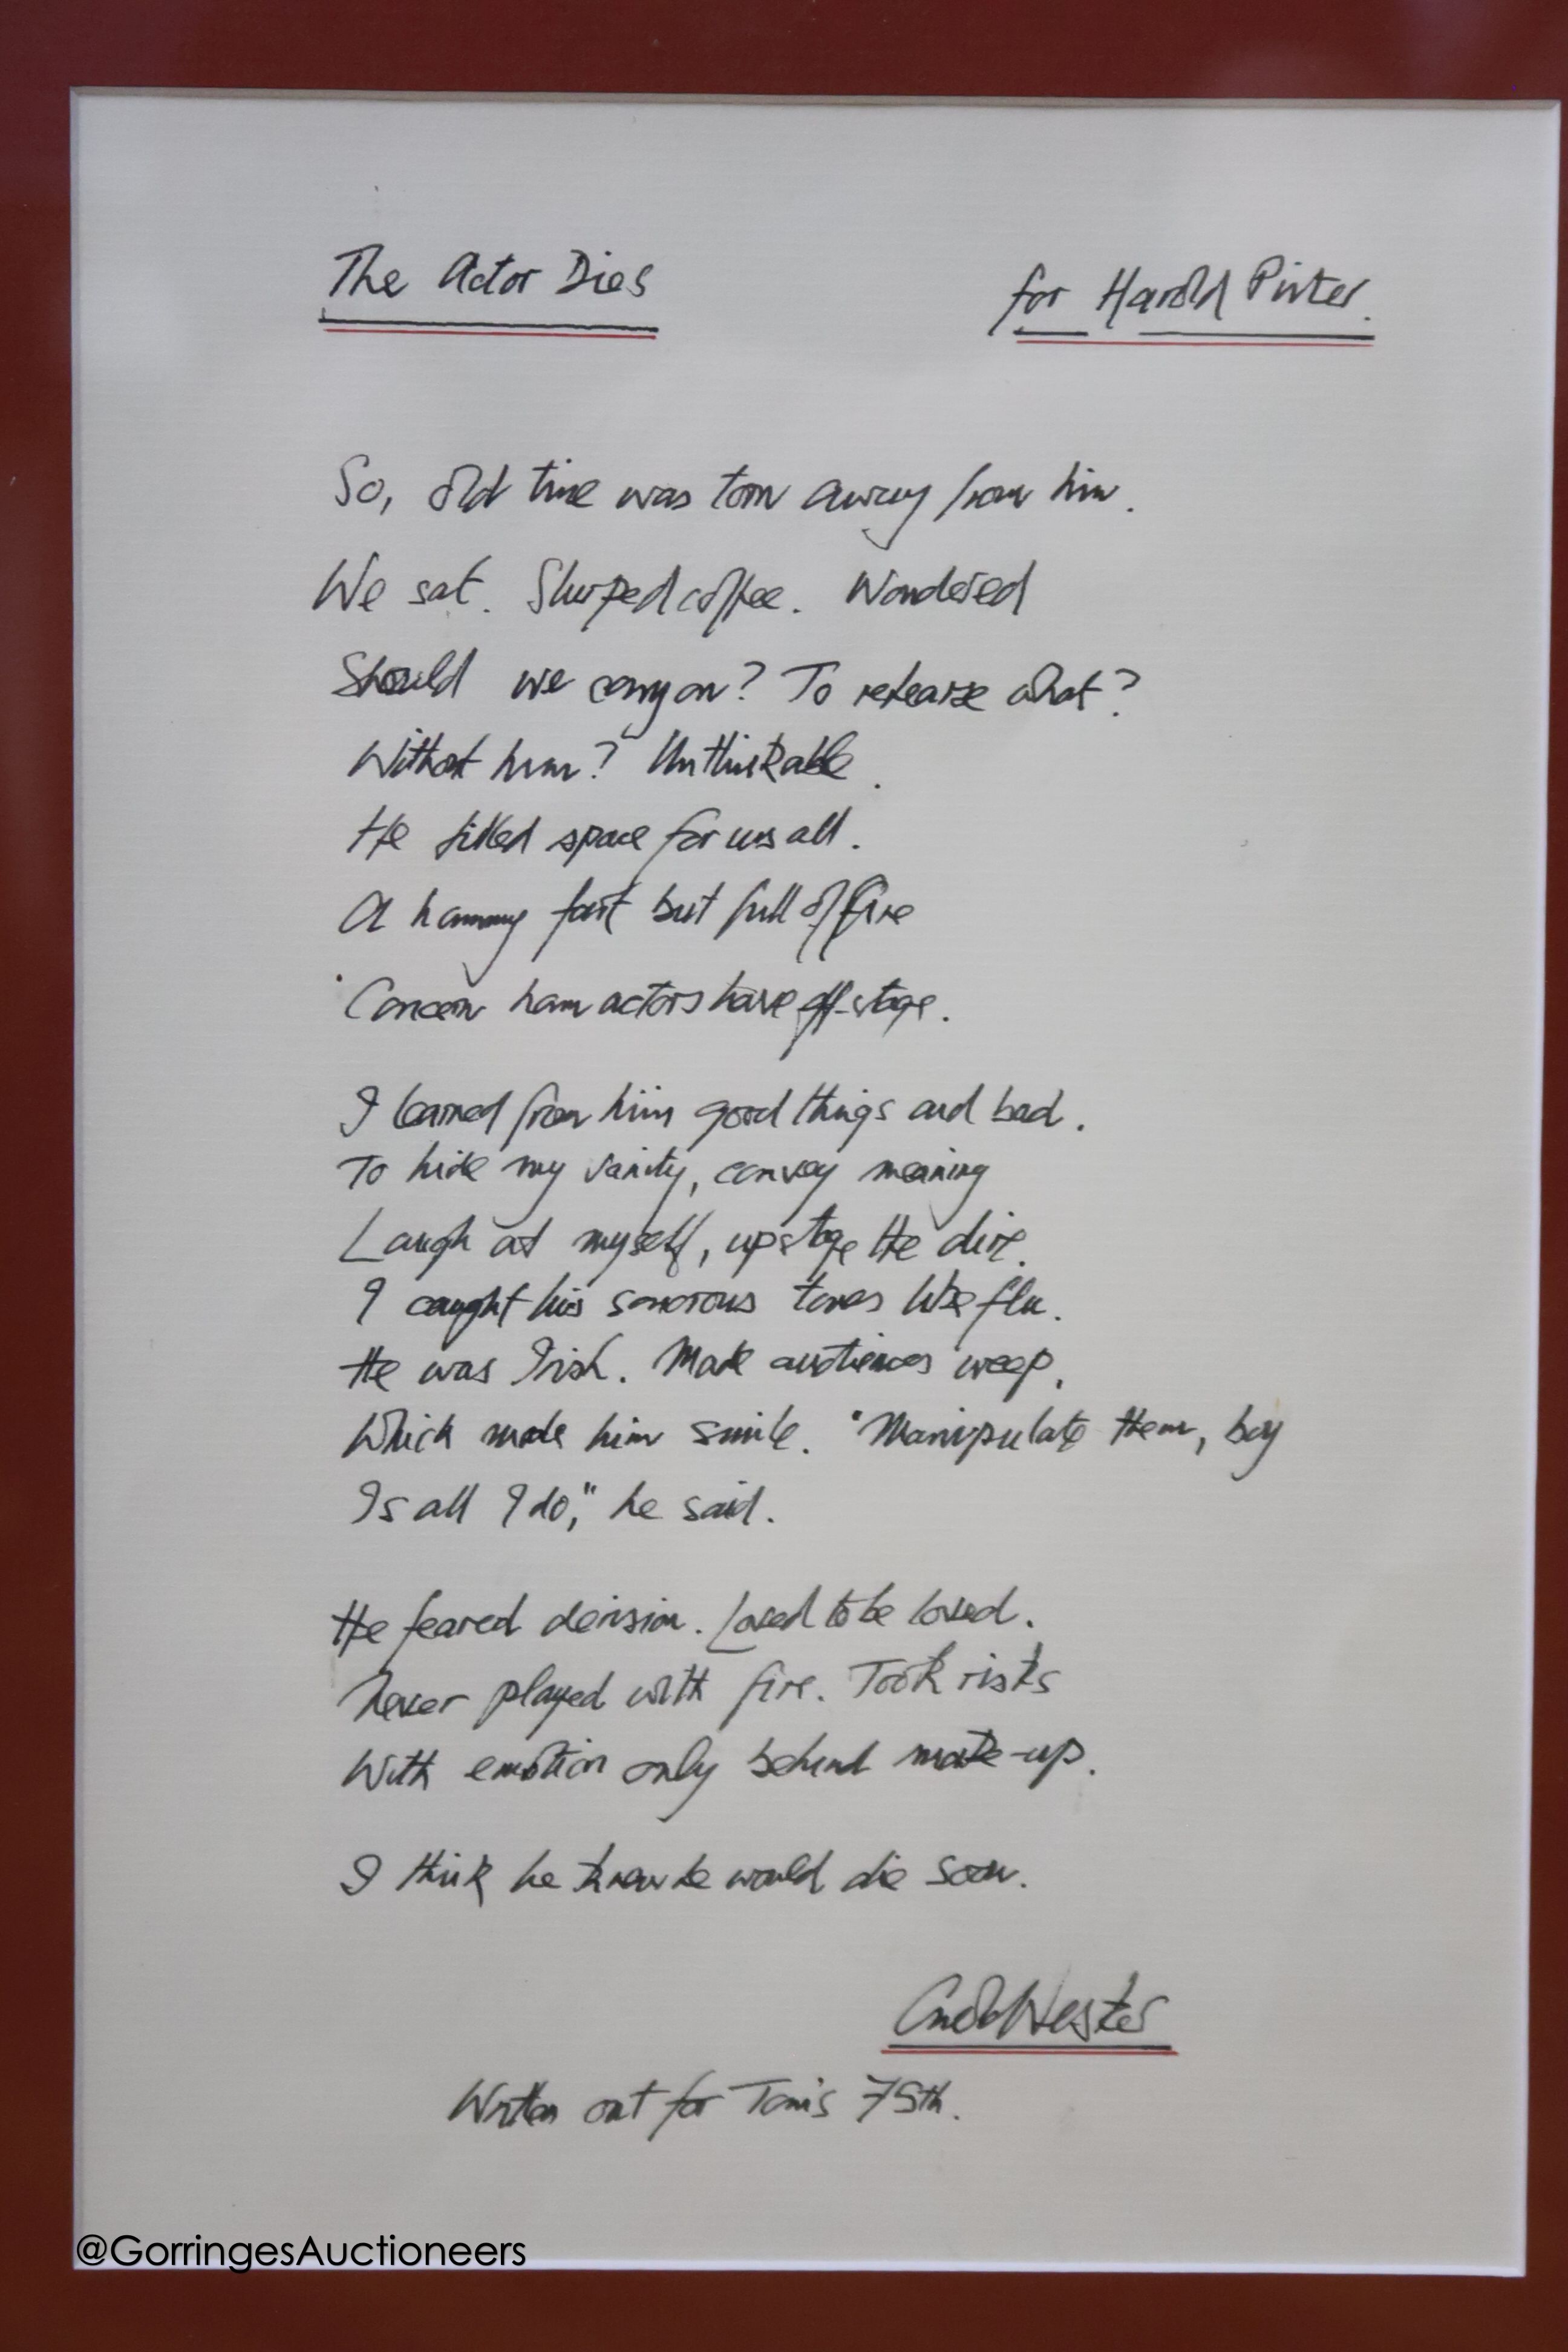 The Actor Dies for Harold Pinter.
So, old time was torn away from him.
We sat. Slurped coffee. Wondered
Should we carry on? To rehearse what?
Without him? Unthinkable.
He filled space for us all.
A hammy fart but full of fire
Concern ham actors have off-stage.
I learned from him good things and bad.
To hide my vanity, convey meaning
Laugh at myself, upstage the dire.
I caught his sonorous tones like flu.
He was Irish. Made audiences weep,
Which made him smile. "Manipulate them, boy
Is all I do," he said.
He feared derision. Loved to be loved.
Never played with fire. Took risks
With emotion only behind make-up.
I think he knew he would die soon.
Wesker
Written out for Tom's 75th.
@GorringesAuctioneers